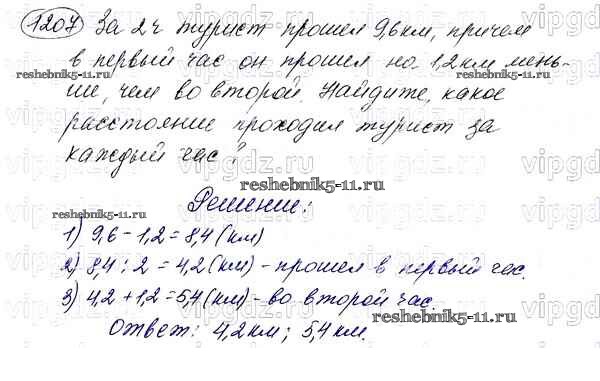 1207 За 2 ч турист прошел 9,6 км, причем
в первый час он прошел на 1,2 км мень-
ше, чем во второй. Найдите, какое
расстояние проходил турист за
каждый час?
Решение:
1) 9,6 - 1,2 = 8,4 (км)
2) 8,4 : 2 = 4,2 (км) - прошел в первый час.
3) 4,2 + 1,2 = 5,4 (км) - во второй час.
Ответ: 4,2 км; 5,4 км.
reshebnik5-11.ru
reshebnik5-11.ru
reshebnik5-11.ru
reshebnik5-11.ru
vipgdz.ru